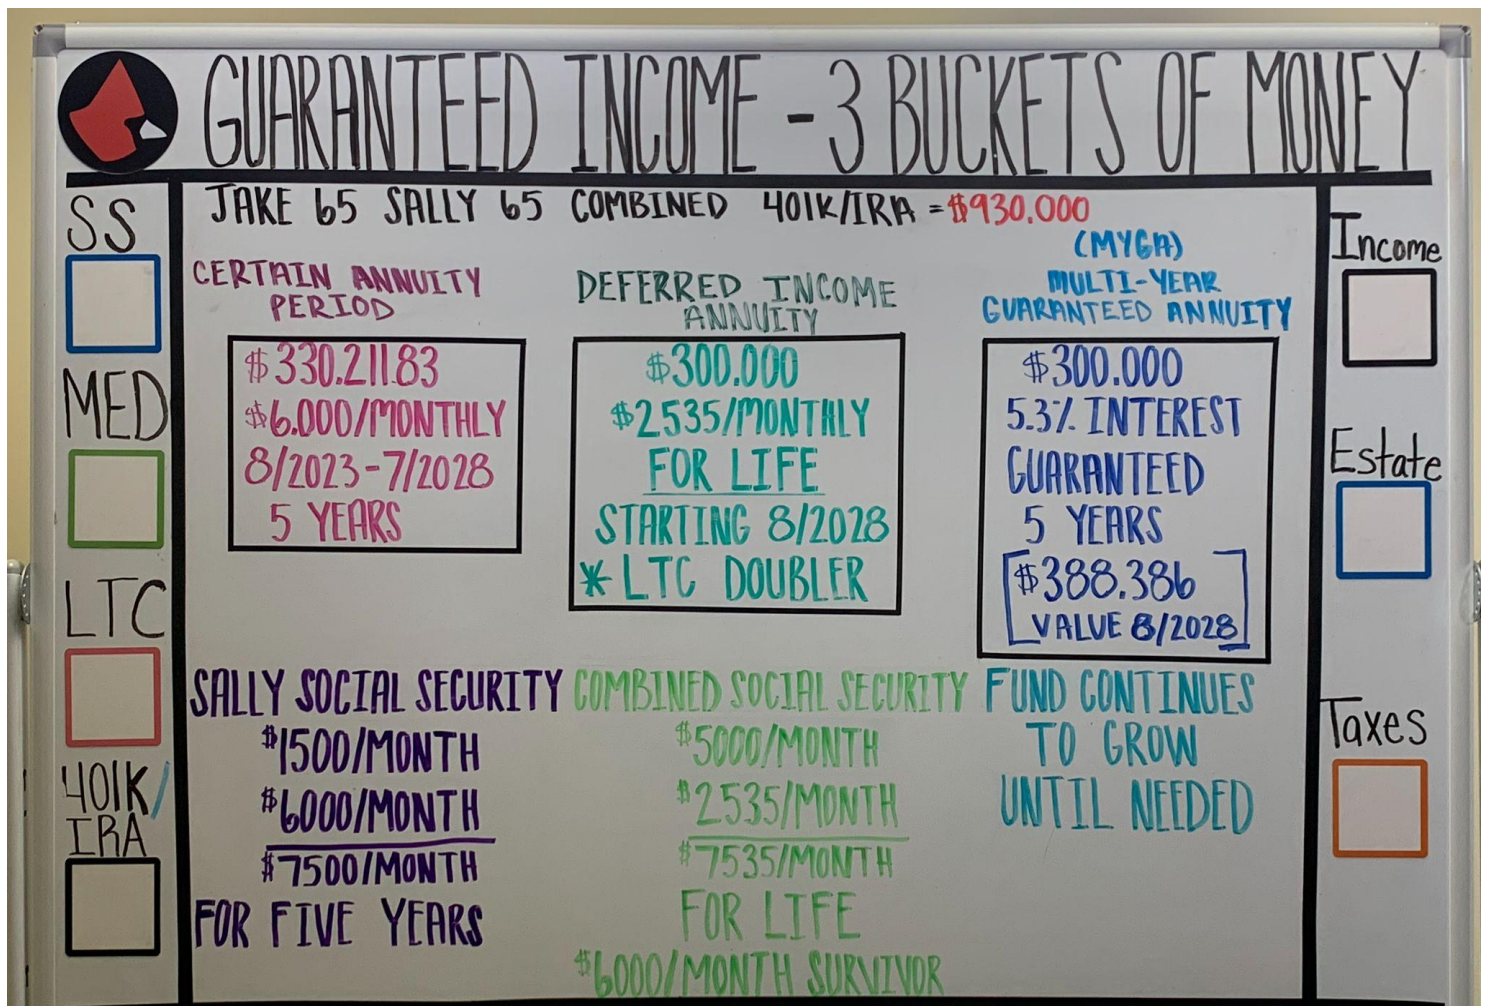 GUARANTEED INCOME - 3 BUCKETS OF MONEY
JAKE 65 SALLY 65 COMBINED 401K/IRA = $930.000
SS
MED
LTC
401K/
IRA
CERTAIN ANNUITY
PERIOD
$330.211.83
$6.000/MONTHLY
8/2023-7/2028
5 YEARS
DEFERRED INCOME
ANNUITY
$300.000
$2535/MONTHLY
FOR LIFE
STARTING 8/2028
* LTC DOUBLER
(MYGA)
MULTI-YEAR
GUARANTEED ANNUITY
$300.000
5.3% INTEREST
GUARANTEED
5 YEARS
$388.386
VALUE 8/2028
SALLY SOCIAL SECURITY
$1500/MONTH
$6000/MONTH
$7500/MONTH
FOR FIVE YEARS
COMBINED SOCIAL SECURITY
$5000/MONTH
$2535/MONTH
$7535/MONTH
FOR LIFE
$6000/MONTH SURVIVOR
FUND CONTINUES
TO GROW
UNTIL NEEDED
Income
Estate
Taxes